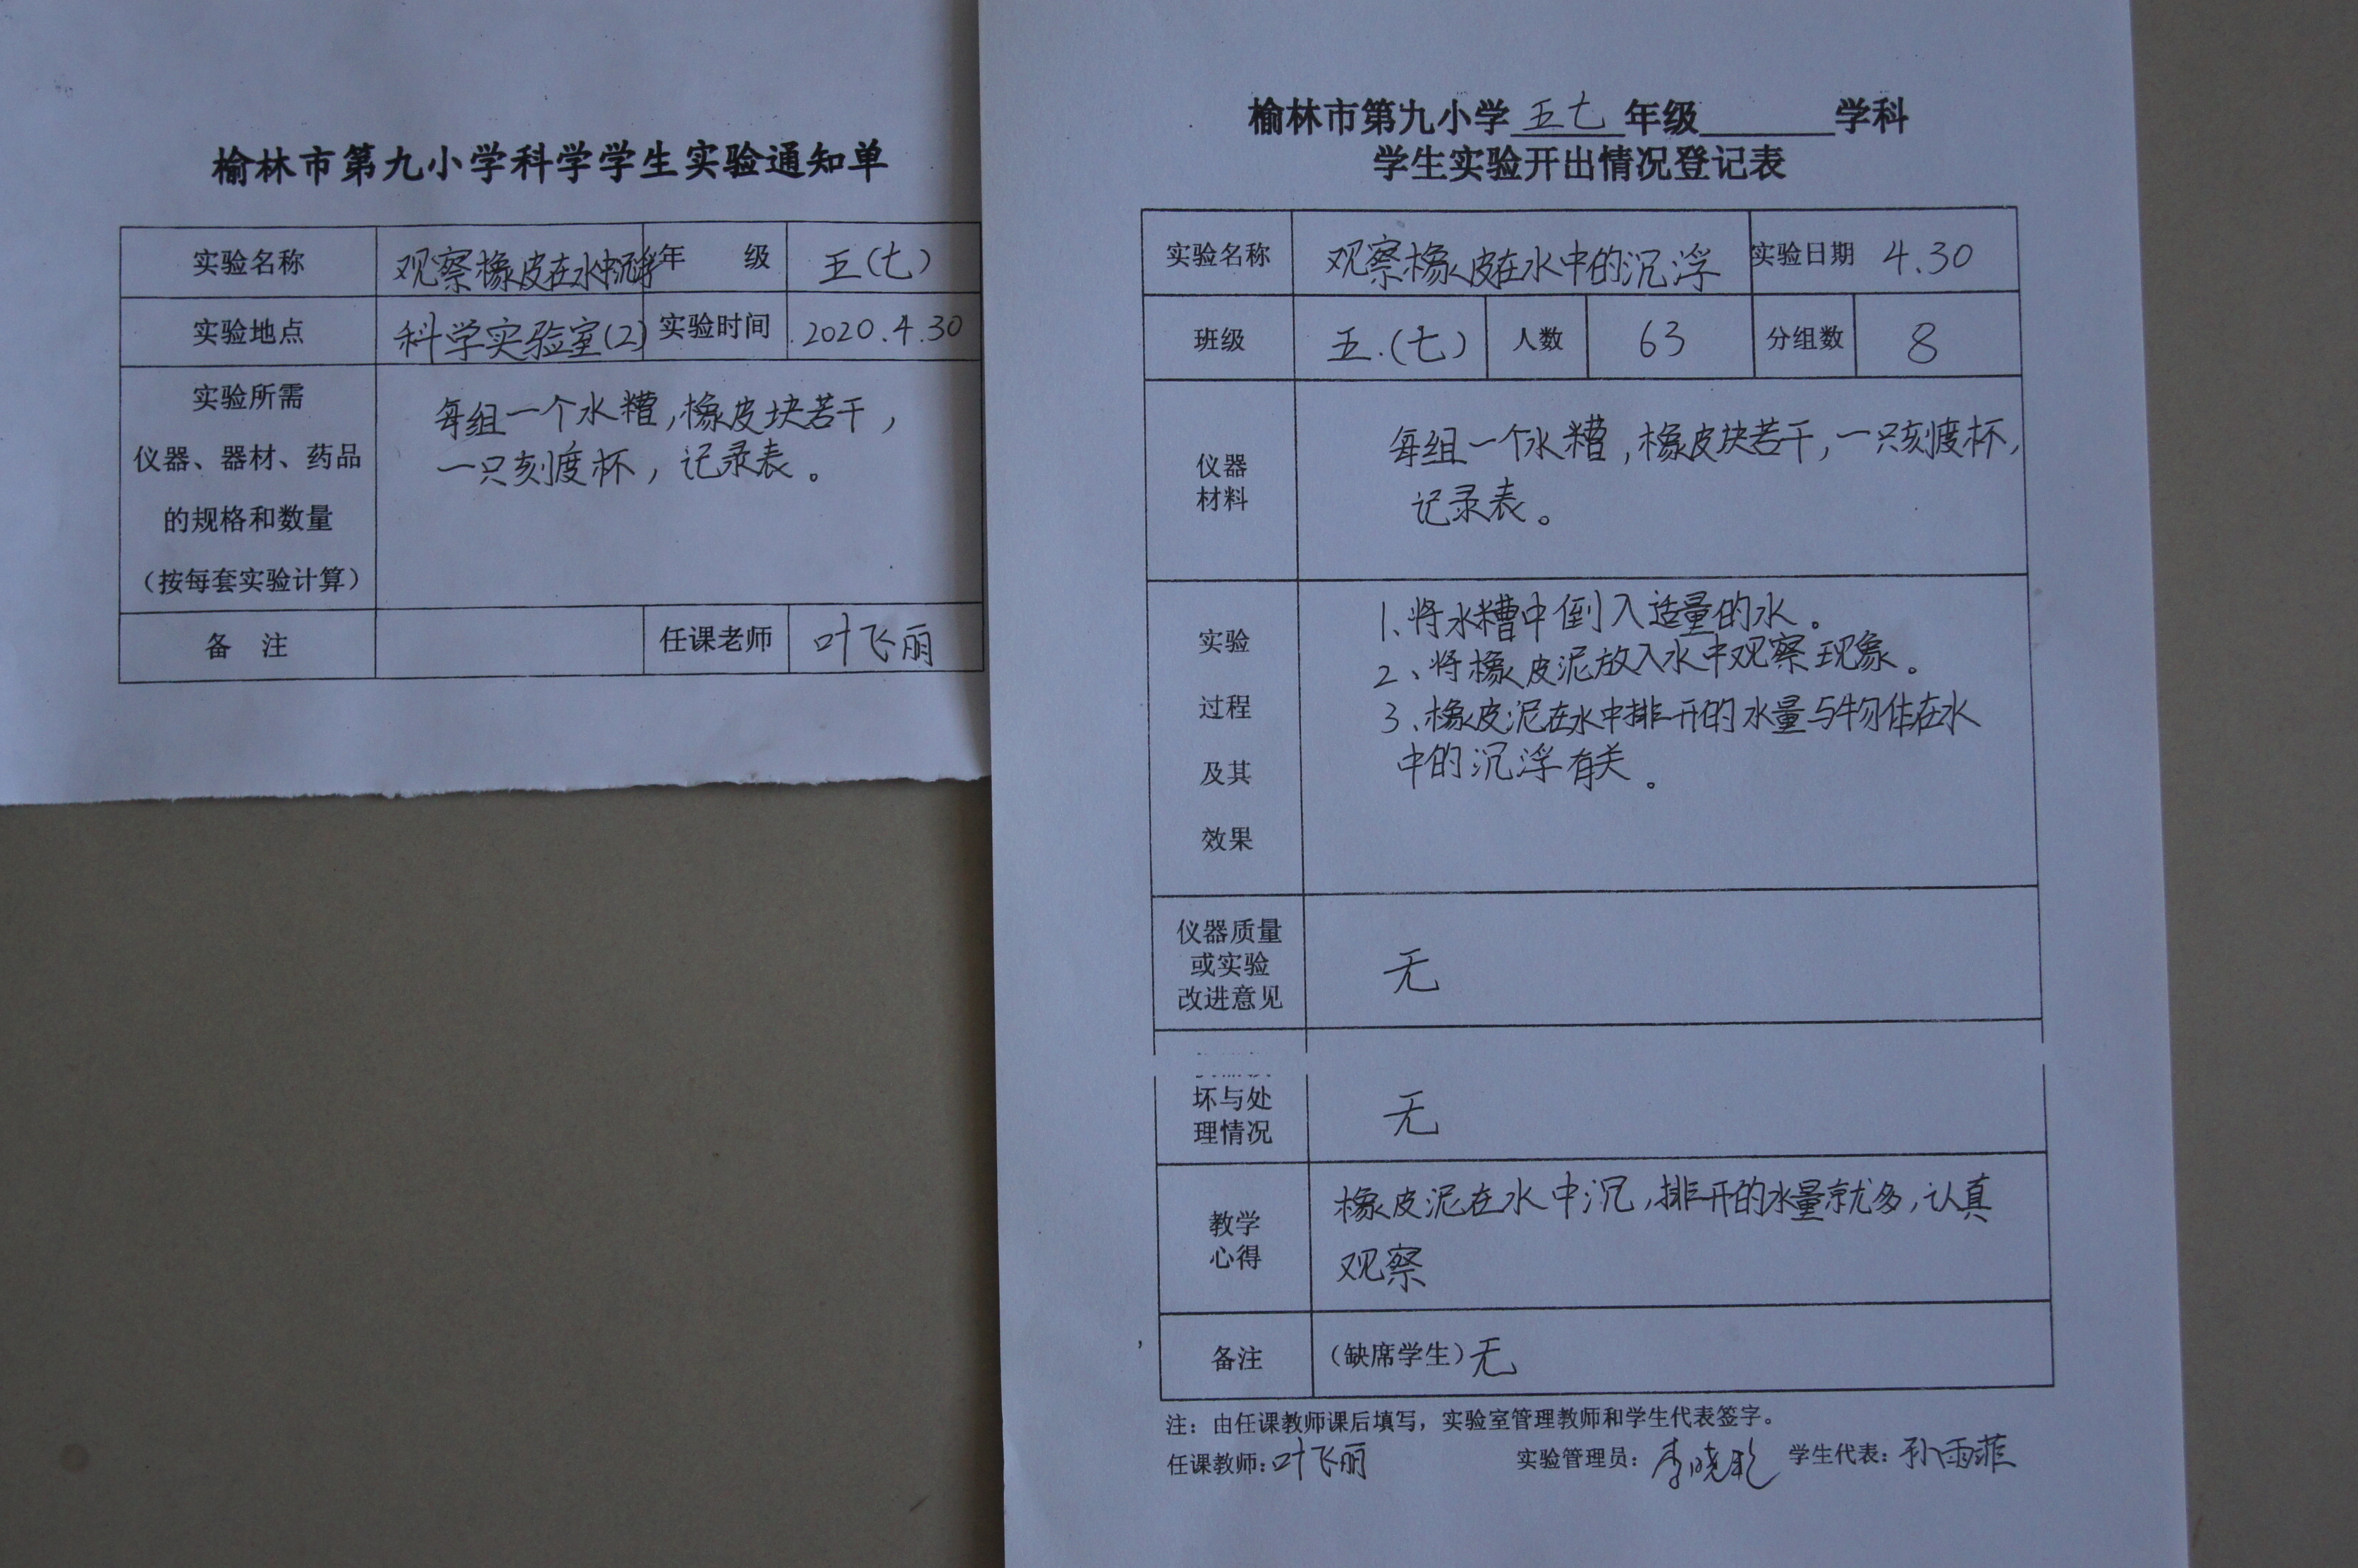 榆林市第九小学科学学生实验通知单
实验名称 观察橡皮在水中沉浮 年 级 五(七)
实验地点 科学实验室(2) 实验时间 2020.4.30
实验所需
仪器、器材、药品
的规格和数量
(按每套实验计算)
每组一个水糟,橡皮块若干,
一只刻度杯,记录表。
备 注 任课老师 叶飞丽
榆林市第九小学 五七 年级 学科
学生实验开出情况登记表
实验名称 观察橡皮在水中的沉浮 实验日期 4.30
班级 五.(七) 人数 63 分组数 8
仪器
材料
每组一个水糟,橡皮块若干,一只刻度杯,
记录表。
实验
过程
及其
效果
1、将水糟中倒入适量的水。
2、将橡皮泥放入水中观察现象。
3、橡皮泥在水中排开的水量与物体在水
中的沉浮有关。
仪器质量
或实验
改进意见
无
坏与处
理情况
无
教学
心得
橡皮泥在水中沉,排开的水量就多,认真
观察
备注 (缺席学生)无
注:由任课教师课后填写,实验室管理教师和学生代表签字。
任课教师:叶飞丽 实验管理员:李晓 学生代表:孙雨菲